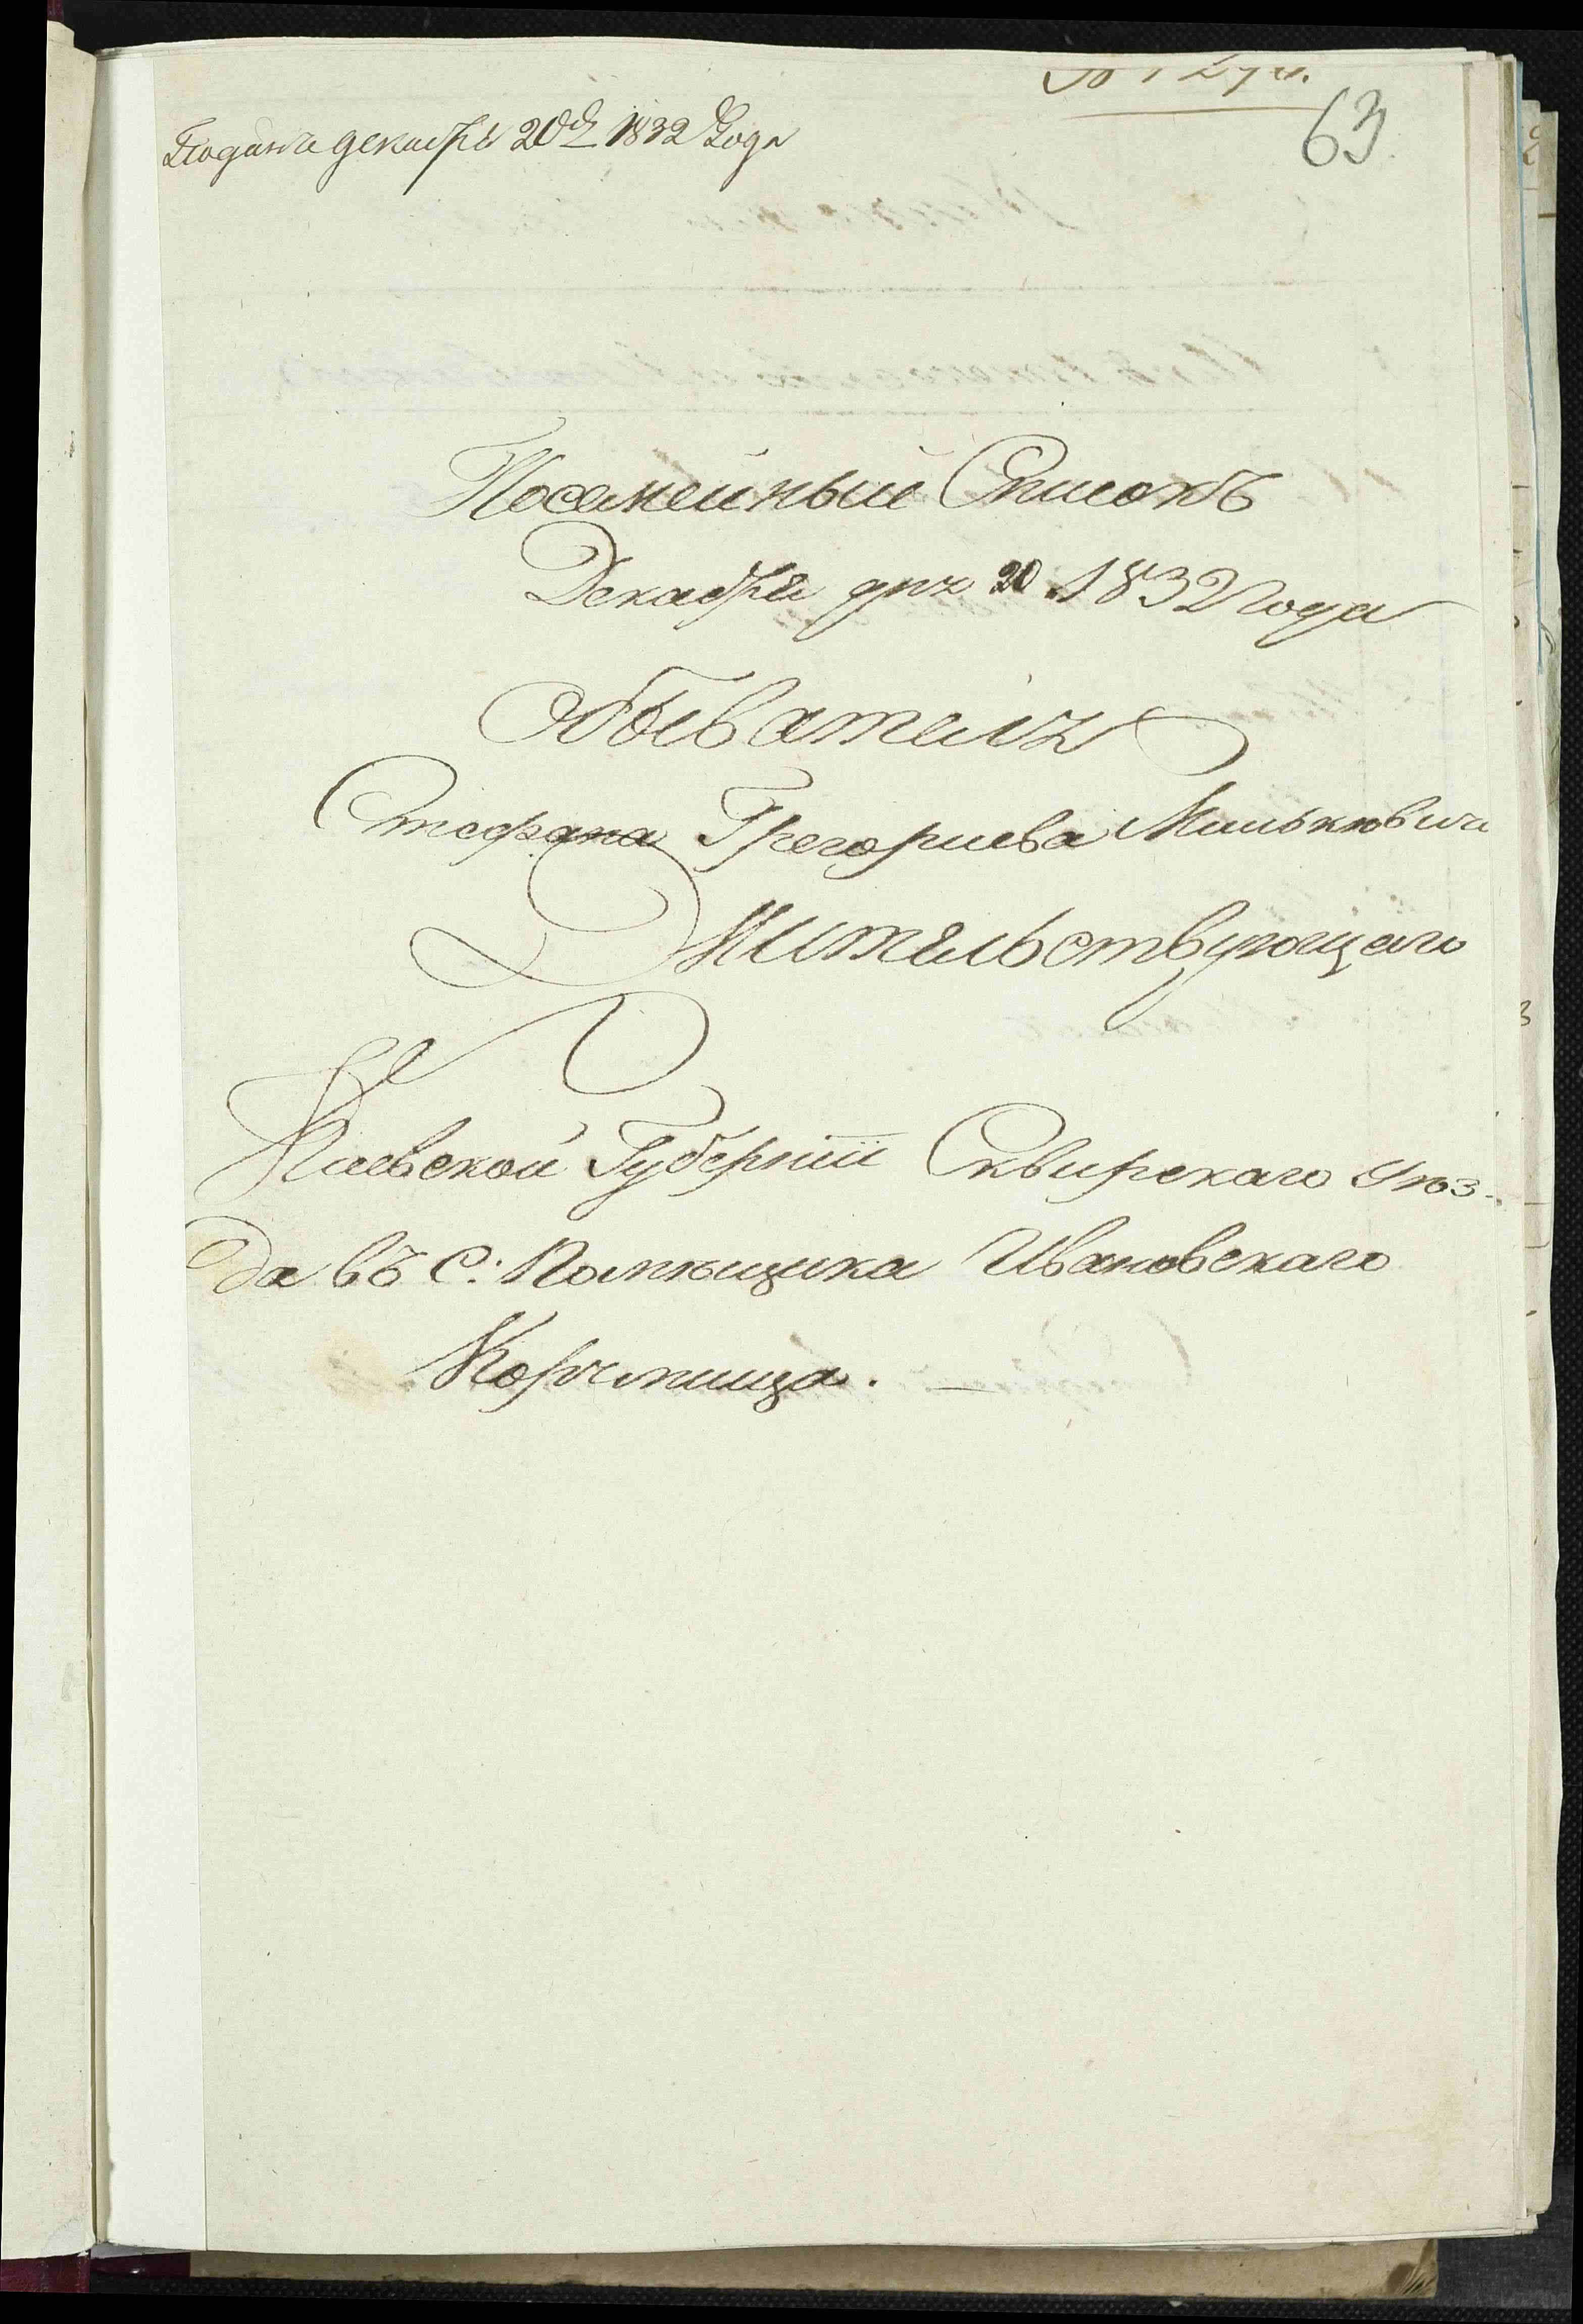 63
Подана декабря 20 д 1832 Года
Посемейный Список
Декабря дня 20 1832 года
Обывателя
Стефана Грегориева Минькювича
Жительствующаго
Киевской Губернiи Сквирскаго Уѣз-
да въ С: Помѣщика Ивановскаго
Корчмища.